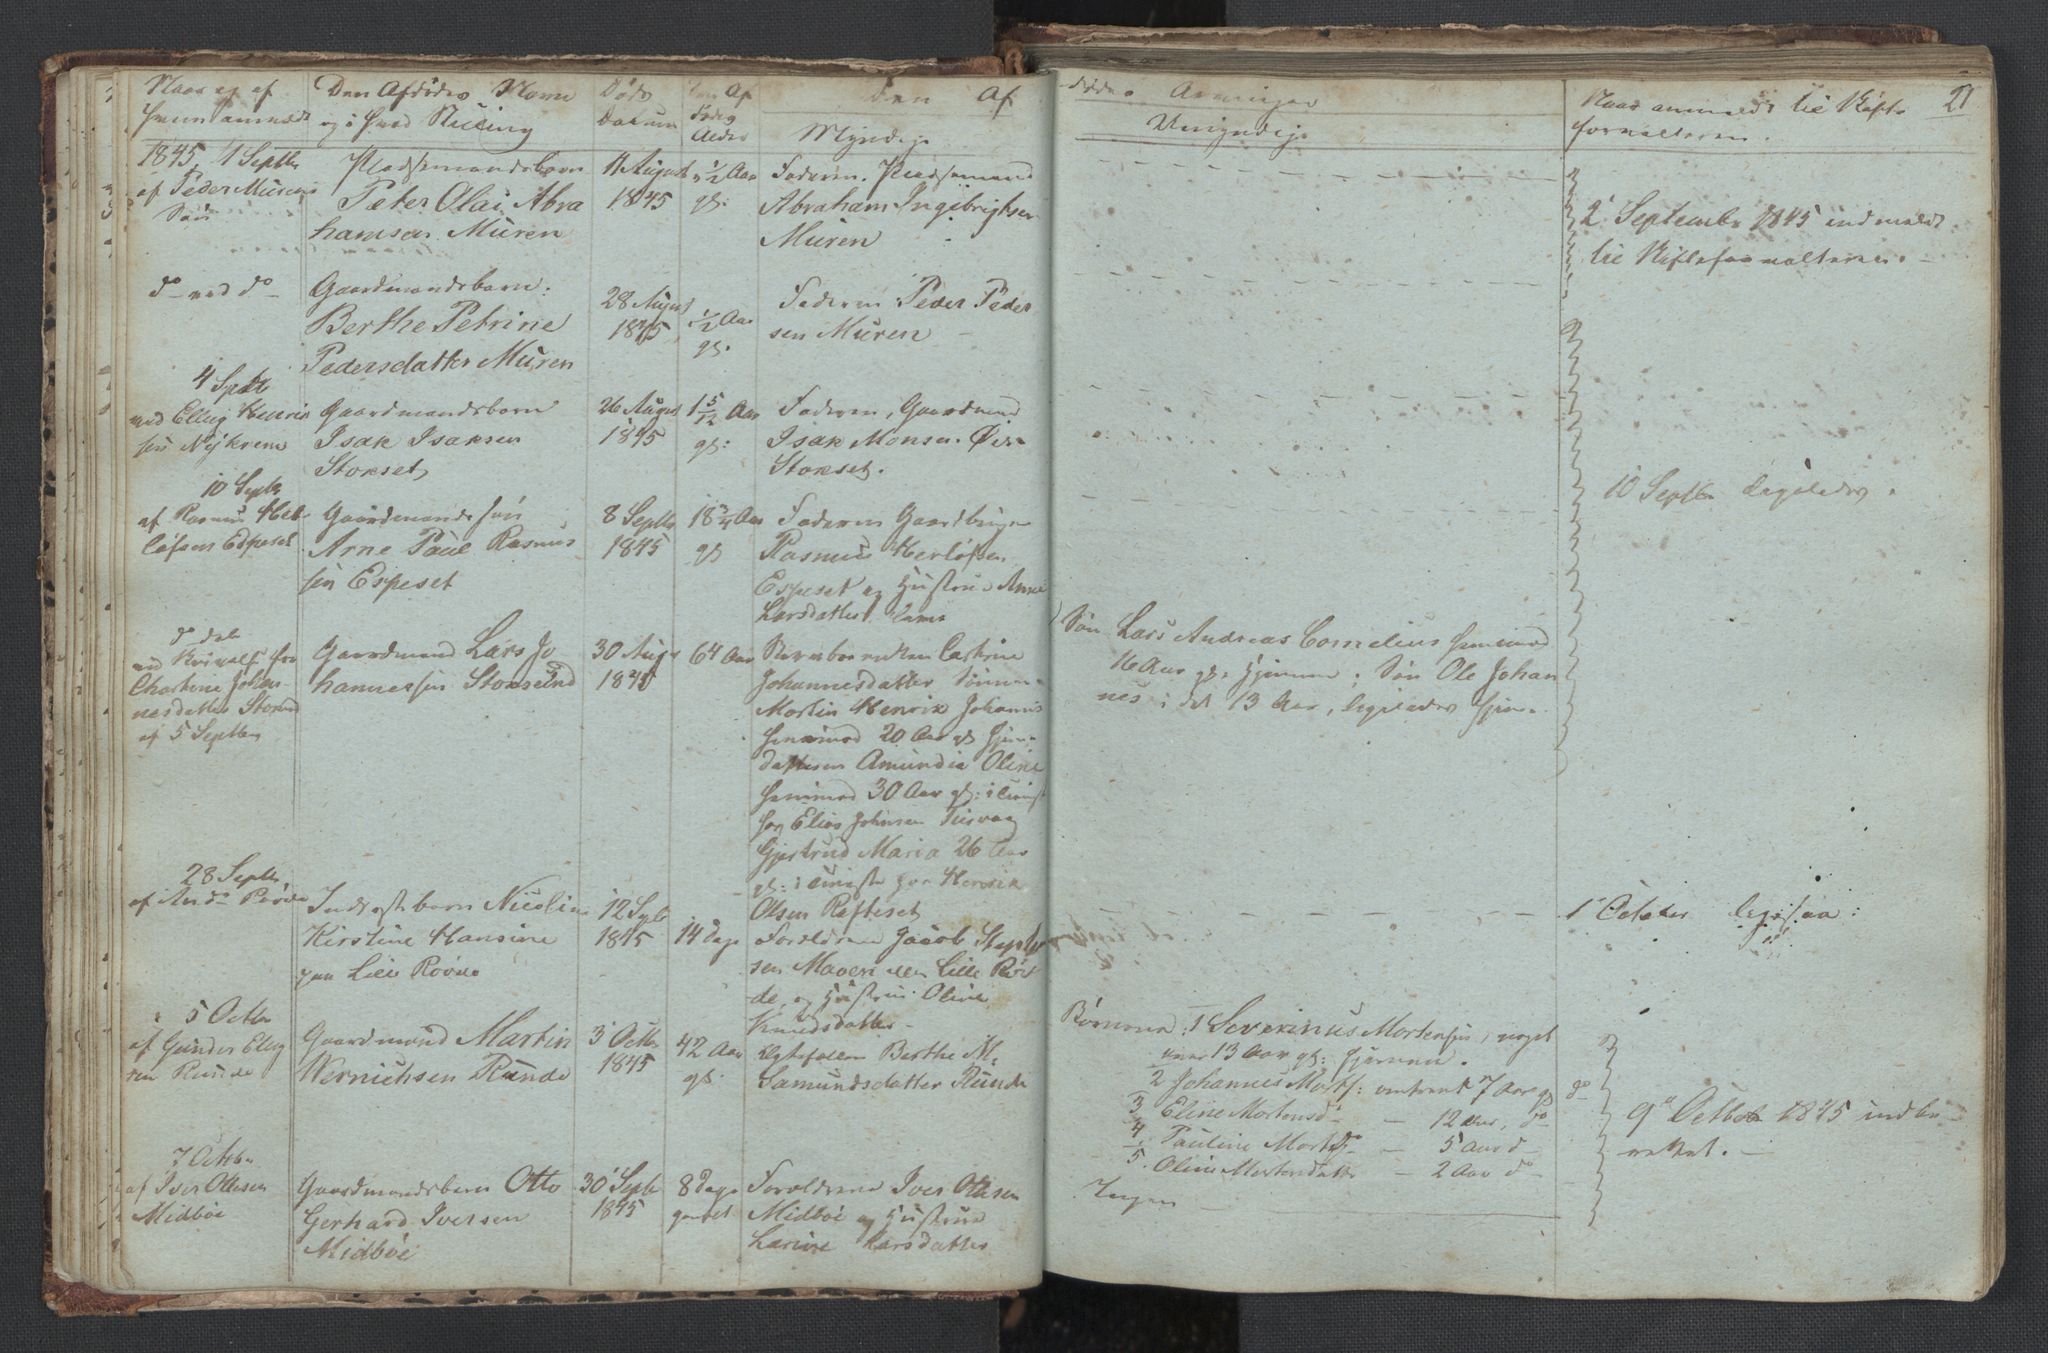 Naar og af
hvem anmeldt
Den Afdødes Navn
og i hvad Stilling
Døds
Datum
den Af
dødes
Alder
Den Af
Myndige
dødes Arvinger
Umyndige
Naar anmeldt til Skifte
forvalteren.
21
1845, 1 Septbr
af Peder Muren
Pladsemandsbarn
Peter Olai Abra
hamsen Muren
11 August
1845
1/2 Aar
gl:
Faderen, Pladsemand
Abraham Ingebrigtsen
Muren
2 Septembr 1845 indmeldt
til Skifteforvalteren.
do ved do
Gaardmandsbarn:
Berthe Petrine
Pedersdatter Muren
28 August
1845
1/2 Aar
gl.
Faderen Peder Peder
sen Muren
4 Septbr
ved Elling Henrik
sen Nykrem
Gaardmandsbarn
Isak Isaksen
Stokset
26 August
1845
1 5/12 Aar
gl:
Faderen, Gaardmand
Isak Monsen
Stokset.
10 Septbr
af Rasmus Her
løfsen Espeset
Gaardmands søn
Arne Paul Rasmus
sen Espeset
8 Septbr
1845
18 3/4 Aar
gl
Faderen Gaardbruger
Rasmus Herløfsen
Espeset og Hustrue Anne
Larsdatter
10 Septbr ligeledes.
do dato
ved Skrivelse fra
Chartrine Johan-
nesdatter Storsund
af 5 Septbr
Gaardmand Lars Jo
hannessen Storsund
30 Augs
1845
64 Aar
Johannesdatter Sønnen
Martin Henrik Johannes
henimod 20 Aar gl hjemme
datteren Amundia Oline
henimod 30 Aar gl:
for Elias Johnsen
Gjertrud Maria 26 Aar
gl: i for Henrik
Olsen Rafteset
Søn Lars Andreas Cornelius henimod
16 Aar gl. hjemme; Søn Ole Johan
nes i det 13 Aar, ligeledes hjemme.
28 Septbr
af Røvde
Inderstbarn Nicoline
Kirstine Hansine
paa Lille Røvde
12 Sept
1845
14 Dage
Forældrene Jacob
sen Lille Røv
de, og Hustrue Oline
Knudsdatter
1 October ligesaa:
5 Octbr
af Gunder Elling
sen Runde
Gaardmand Martin
Wernichsen Runde
3 Octbr
1845
42 Aar
gl.
Ægtefællen Berthe M.
Samundsdatter Runde
Børnene: 1 Severinus Mortensen, noget
over 13 Aar gl: hjemme.
2 Johannes Morts: omtrent 7 Aar gl do
3 Eline Mortensd - 12 Aar, do
4. Pauline Mortsd - 5 Aar do
5. Oline Mortensdatter - 2 Aar do
9 Octbr 1845 indbe
rettet.
7 Octbr
af Iver Ottesen
Midbøe
Gaardmandsbarn Otto
Gerhard Iversen
Midbøe
30 Septbr
1845
8 dage
gammel
Forældrene Iver Ottesen
Midbøe og Hustrue
Larine Larsdatter
Ingen